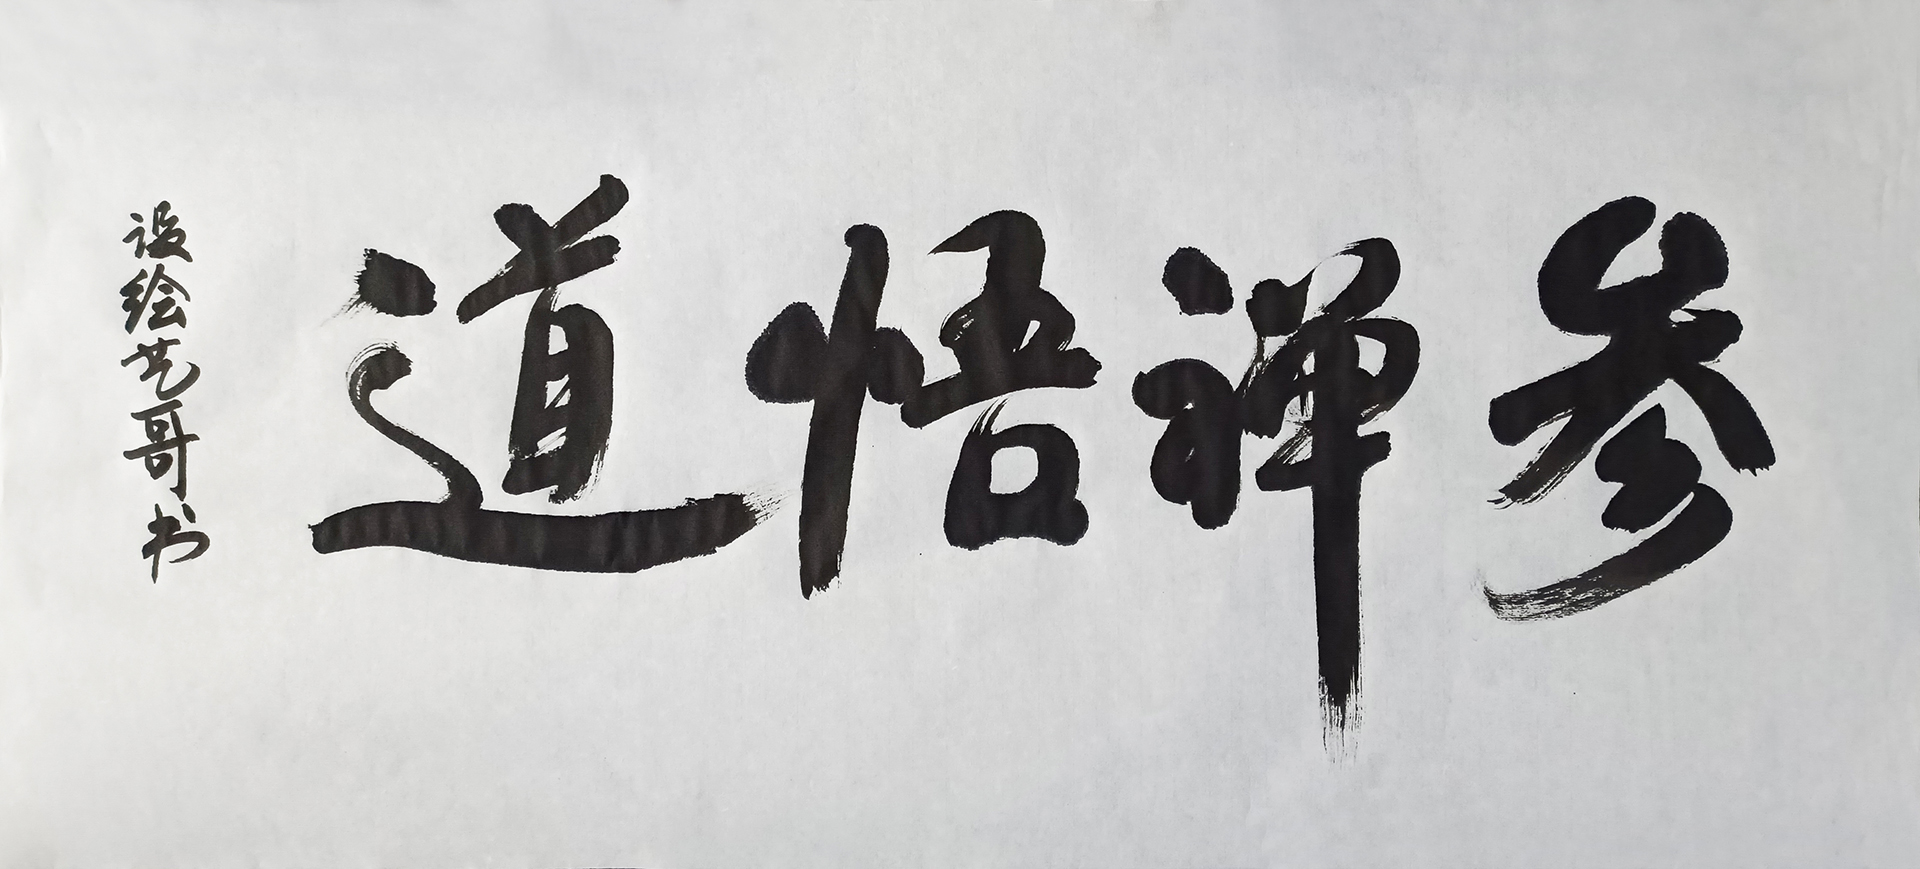 参禅悟道
设绘艺哥书